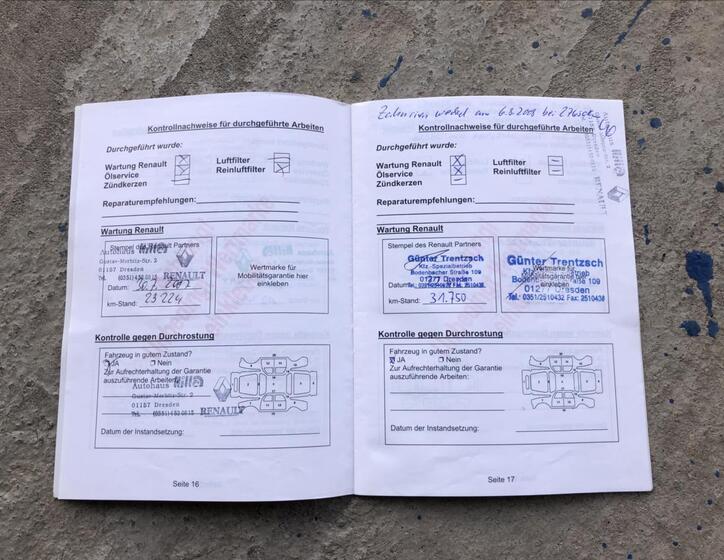 Kontrollnachweise für durchgeführte Arbeiten
Durchgeführt wurde:
Wartung Renault
Ölservice
Zündkerzen
Luftfilter
Reinluftfilter
Reparaturempfehlungen:
Wartung Renault
Stempel des Renault Partners
Autohaus
Gustav-Merbitz-Str. 2
01157 Dresden
RENAULT
Datum:
km-Stand: 23 224
Wertmarke für
Mobilitätsgarantie hier
einkleben
Kontrolle gegen Durchrostung
Fahrzeug in gutem Zustand?
JA Nein
Zur Aufrechterhaltung der Garantie
auszuführende Arbeiten:
Autohaus
Gustav-Merbitz-Str. 2
01157 Dresden
RENAULT
Datum der Instandsetzung:
Seite 16
Kontrollnachweise für durchgeführte Arbeiten
Durchgeführt wurde:
Wartung Renault
Ölservice
Zündkerzen
Luftfilter
Reinluftfilter
RENAULT
Reparaturempfehlungen:
Wartung Renault
Stempel des Renault Partners
Günter Trentzsch
Kfz.-Spezialbetrieb
Bodenbacher Straße 109
01277 Dresden
Datum:
km-Stand: 31.750
Günter Trentzsch
Bodenbacher Straße 109
01277 Dresden
Tel.: 0351/2510432 Fax: 2510438
Kontrolle gegen Durchrostung
Fahrzeug in gutem Zustand?
JA Nein
Zur Aufrechterhaltung der Garantie
auszuführende Arbeiten:
Datum der Instandsetzung:
Seite 17